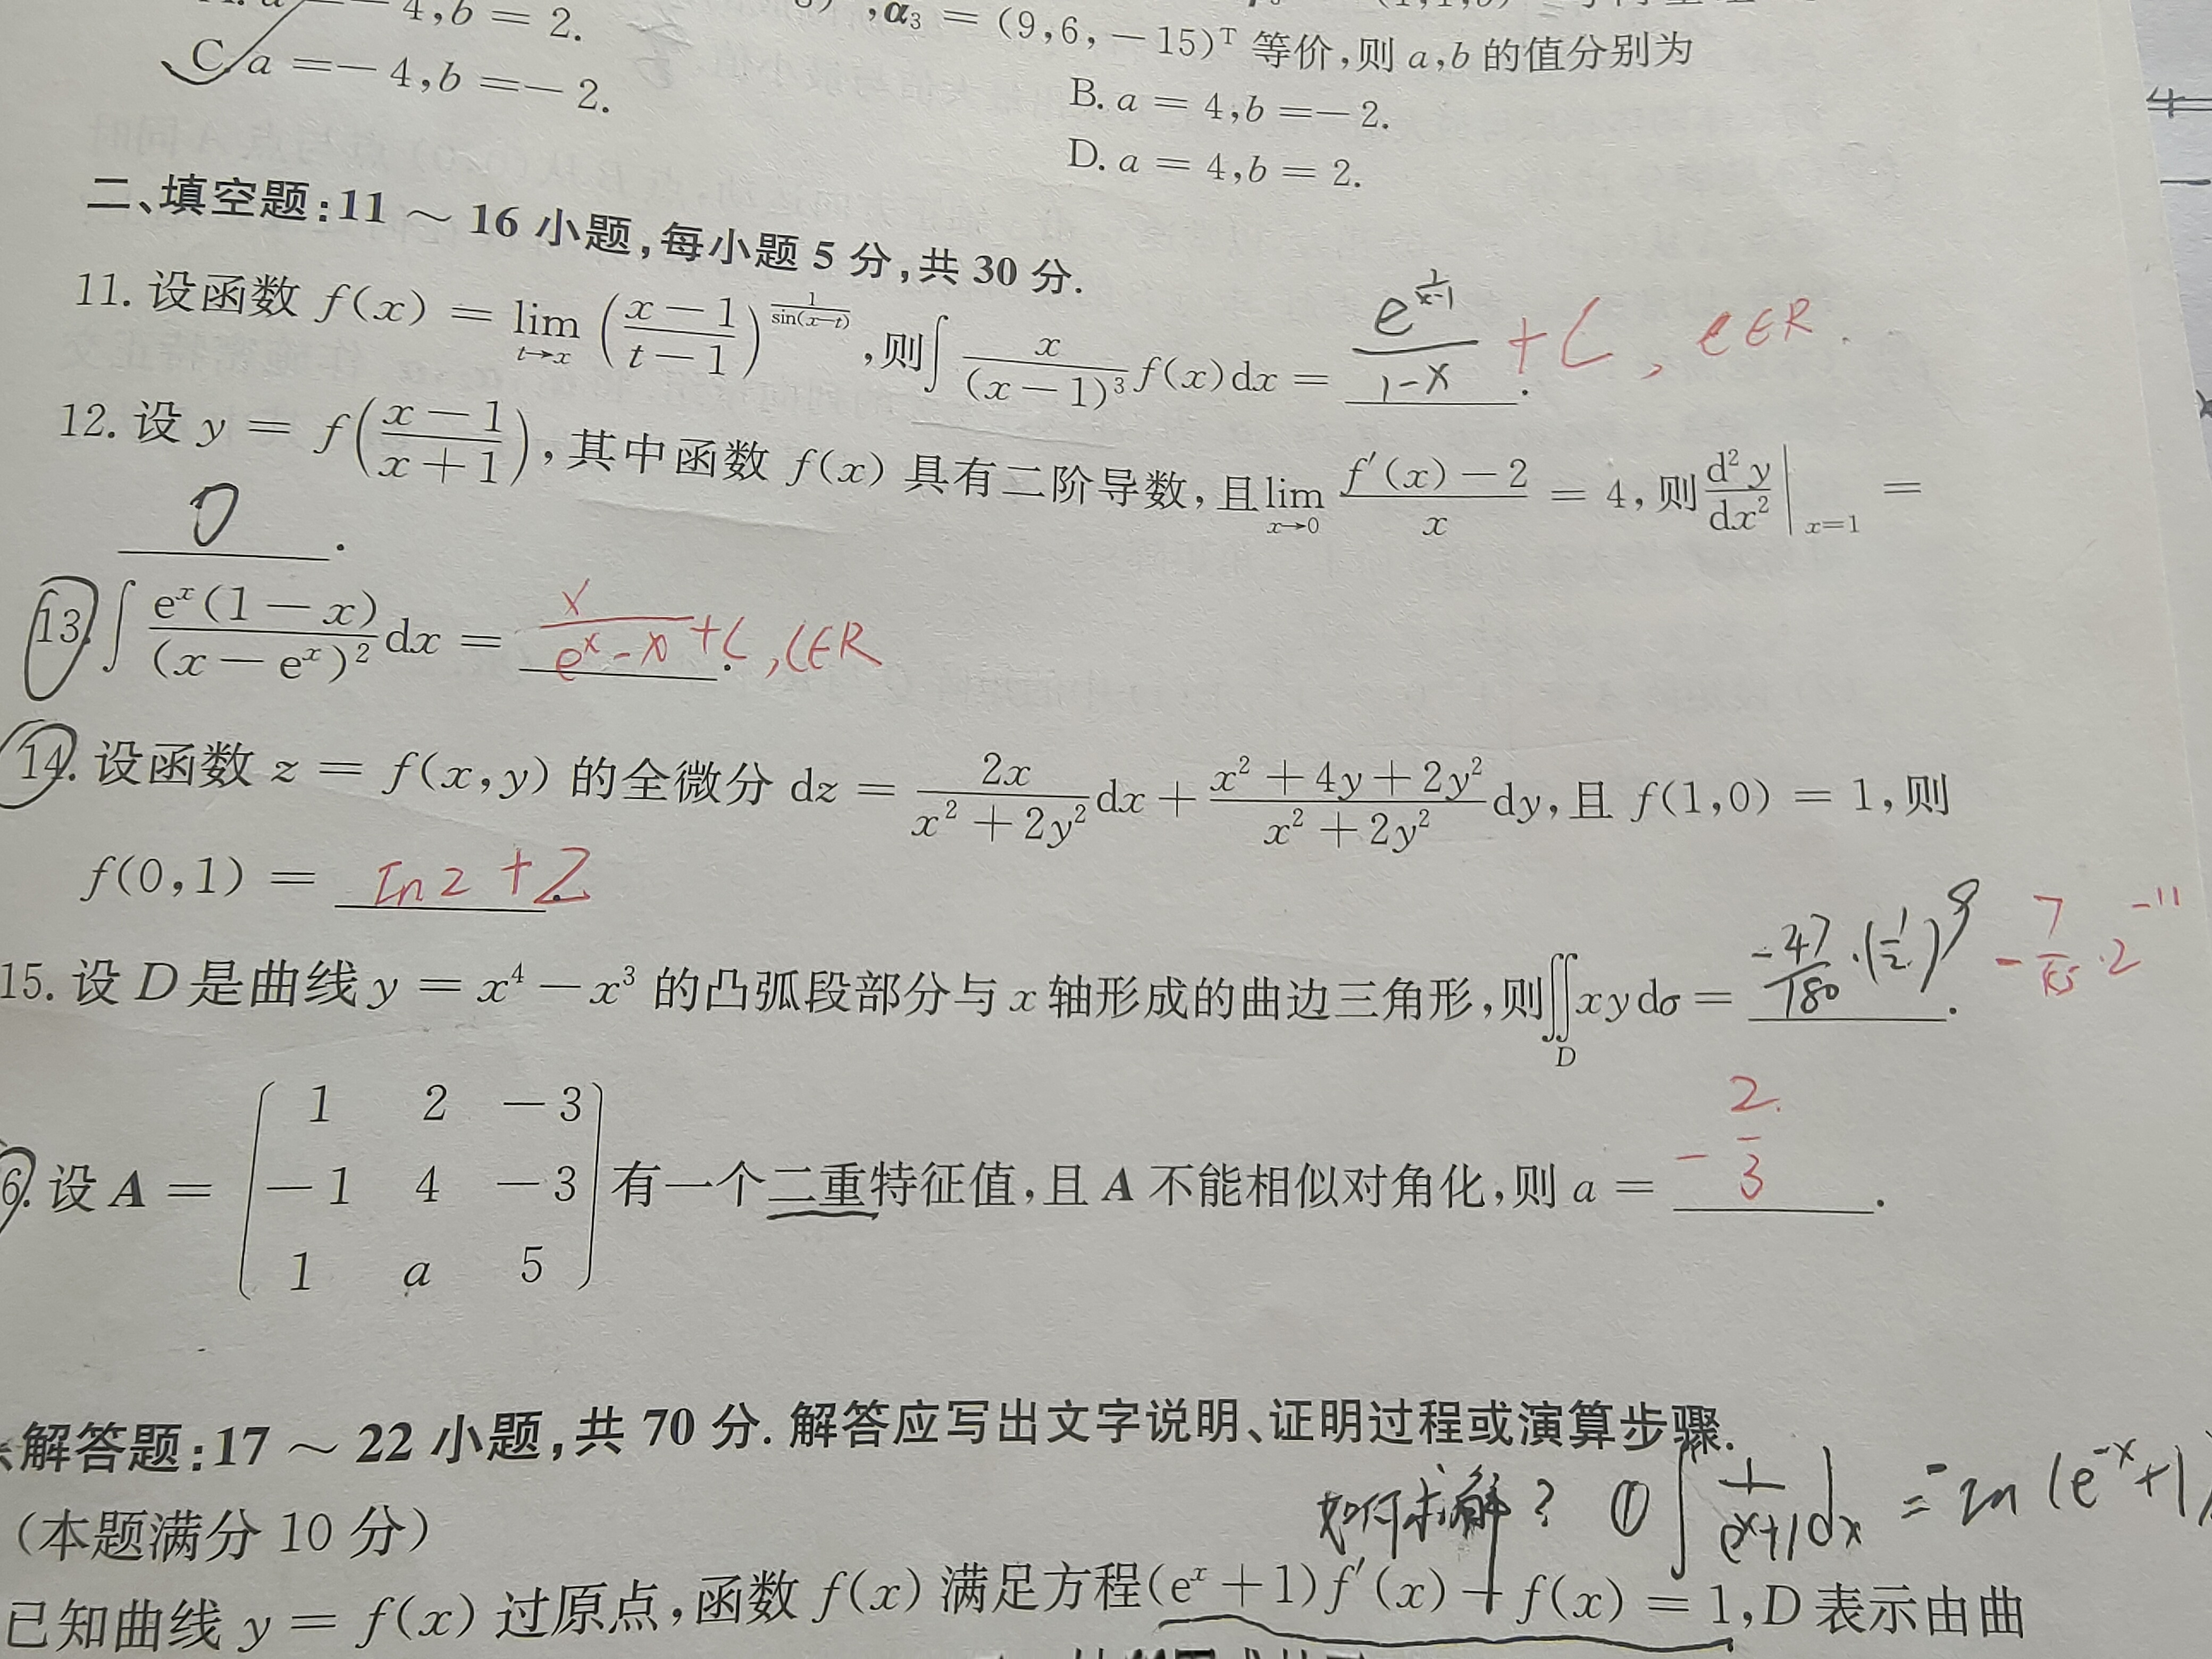 4, b = 2.
, α₃ = (9,6,−15)ᵀ 等价,则 a,b 的值分别为
C. a =− 4,b =− 2.
B. a = 4,b =− 2.
D. a = 4,b = 2.
二、填空题:11 ~ 16 小题,每小题 5 分,共 30 分.
11. 设函数 f(x) = lim_{t→x} ((x−1)/(t−1))^{1/sin(x−t)},则∫ x/(x−1)³ f(x)dx = e^{1/(x−1)}/(1−x) . + C , c∈R .
12. 设 y = f((x−1)/(x+1)),其中函数 f(x) 具有二阶导数,且 lim_{x→0} (f′(x)−2)/x = 4,则 d²y/dx²|_{x=1} =
0 .
13. ∫ eˣ(1−x)/(x−eˣ)² dx = x/(eˣ−x) + C . , C∈R
14. 设函数 z = f(x,y) 的全微分 dz = 2x/(x²+2y²) dx + (x²+4y+2y²)/(x²+2y²) dy,且 f(1,0) = 1,则
f(0,1) = ln2 + 2 .
15. 设 D 是曲线 y = x⁴ − x³ 的凸弧段部分与 x 轴形成的曲边三角形,则∬_D xydσ = −47/180 · (1/2)⁹ . − 7/15 · 2⁻¹¹
6. 设 A = (1 2 −3
−1 4 −3
1 a 5) 有一个二重特征值,且 A 不能相似对角化,则 a = − 2/3 .
解答题:17 ~ 22 小题,共 70 分. 解答应写出文字说明、证明过程或演算步骤.
如何求解? ① ∫ 1/(eˣ+1) dx = −ln(e⁻ˣ+1)
(本题满分 10 分)
已知曲线 y = f(x) 过原点,函数 f(x) 满足方程(eˣ + 1)f′(x) + f(x) = 1,D 表示由曲